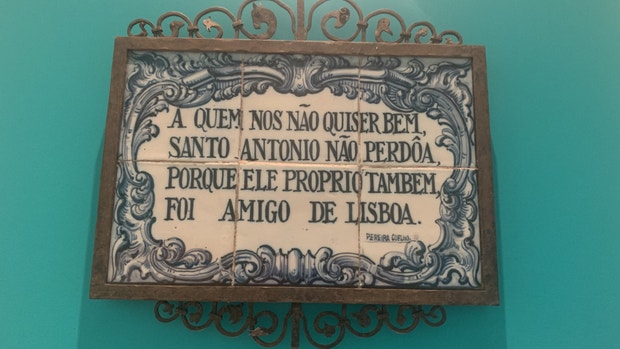 A QUEM NOS NÃO QUISER BEM,
SANTO ANTONIO NÃO PERDÔA,
PORQUE ELE PROPRIO TAMBEM,
FOI AMIGO DE LISBOA.
PEREIRA COELHO